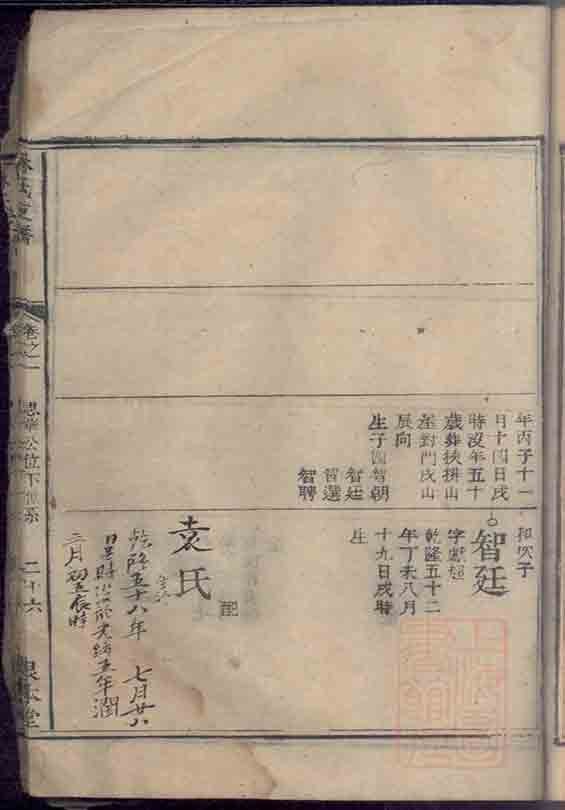 年丙子十一
月十四日戌
時沒年五十
歲葬挾拼山
崖對門戌山
辰向
生子四智朝
智廷
智選
智聘
和次子
智廷
字獻超
乾隆五十二
年丁未八月
十九日戌時
生
配
袁氏
生於
乾隆五十八年 七月廿八
日 時 於光緒五年潤
三月初五辰時
卷之一
思華公位下世系
二十六
根本堂